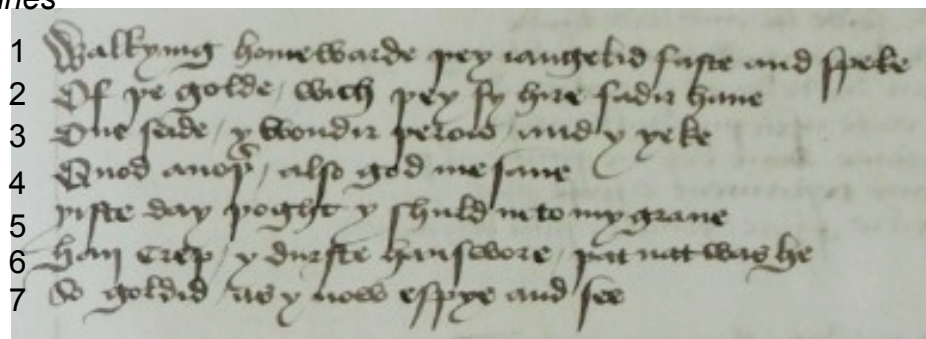 ines
1 Walkyng homewarde þey iangelid faste and speke
2 Of þe golde / wich þey sy hire fadir haue
3 One seide / y wondir / and y yeke
4 Quod anoþ / also god me saue
5 yiste day þoght y shuld in to my graue
6 han crep / y durste han swore / þat nat was he
7 So goldid / as y now espye and see